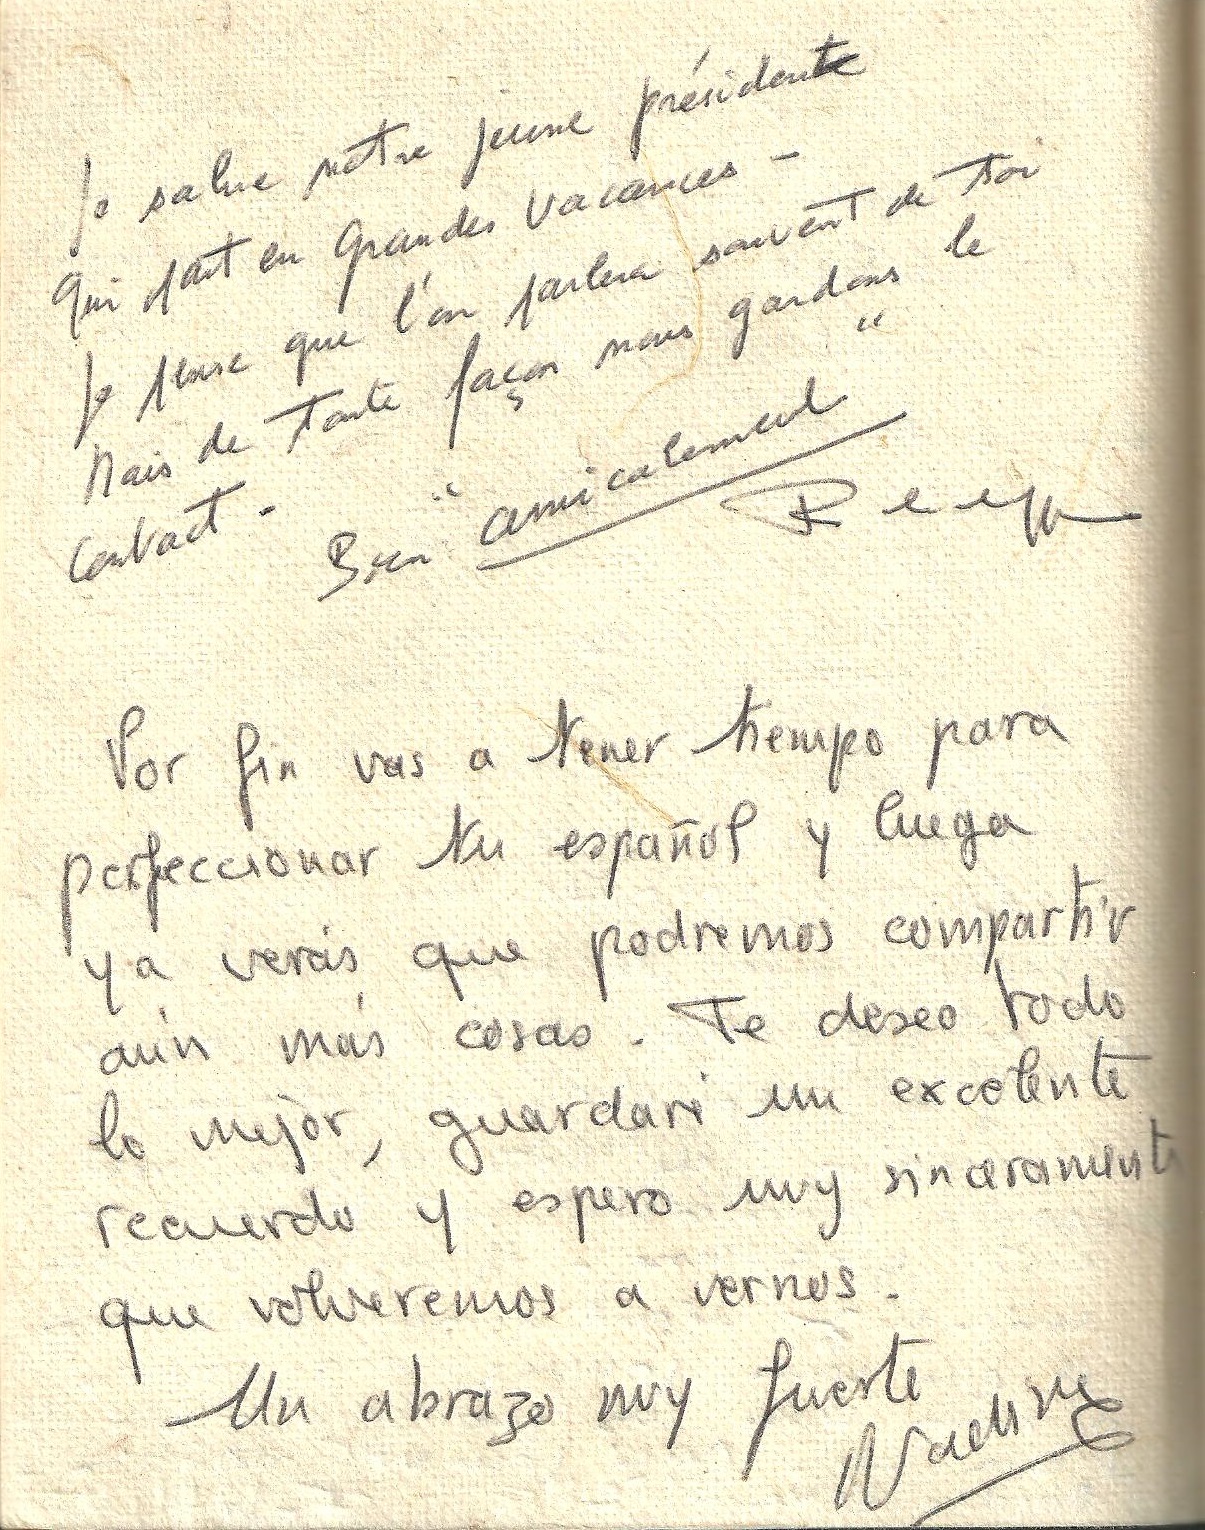 Je salue notre jeune présidente
qui part en grandes vacances -
Je pense que l'on parlera souvent de toi
Mais de toute façon nous gardons le
contact -
Bien "amicalement"
Por fin vas a tener tiempo para
perfeccionar tu español y luego
ya verás que podremos compartir
aún más cosas. Te deseo todo
lo mejor, guardaré un excelente
recuerdo y espero muy sinceramente
que volveremos a vernos.
Un abrazo muy fuerte
Nadine